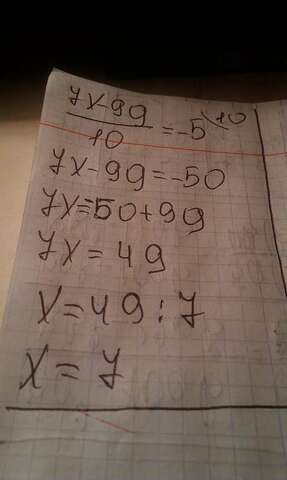 7x-99
10 =-5 \10
7x-99=-50
7x=-50+99
7x=49
x=49:7
x=7